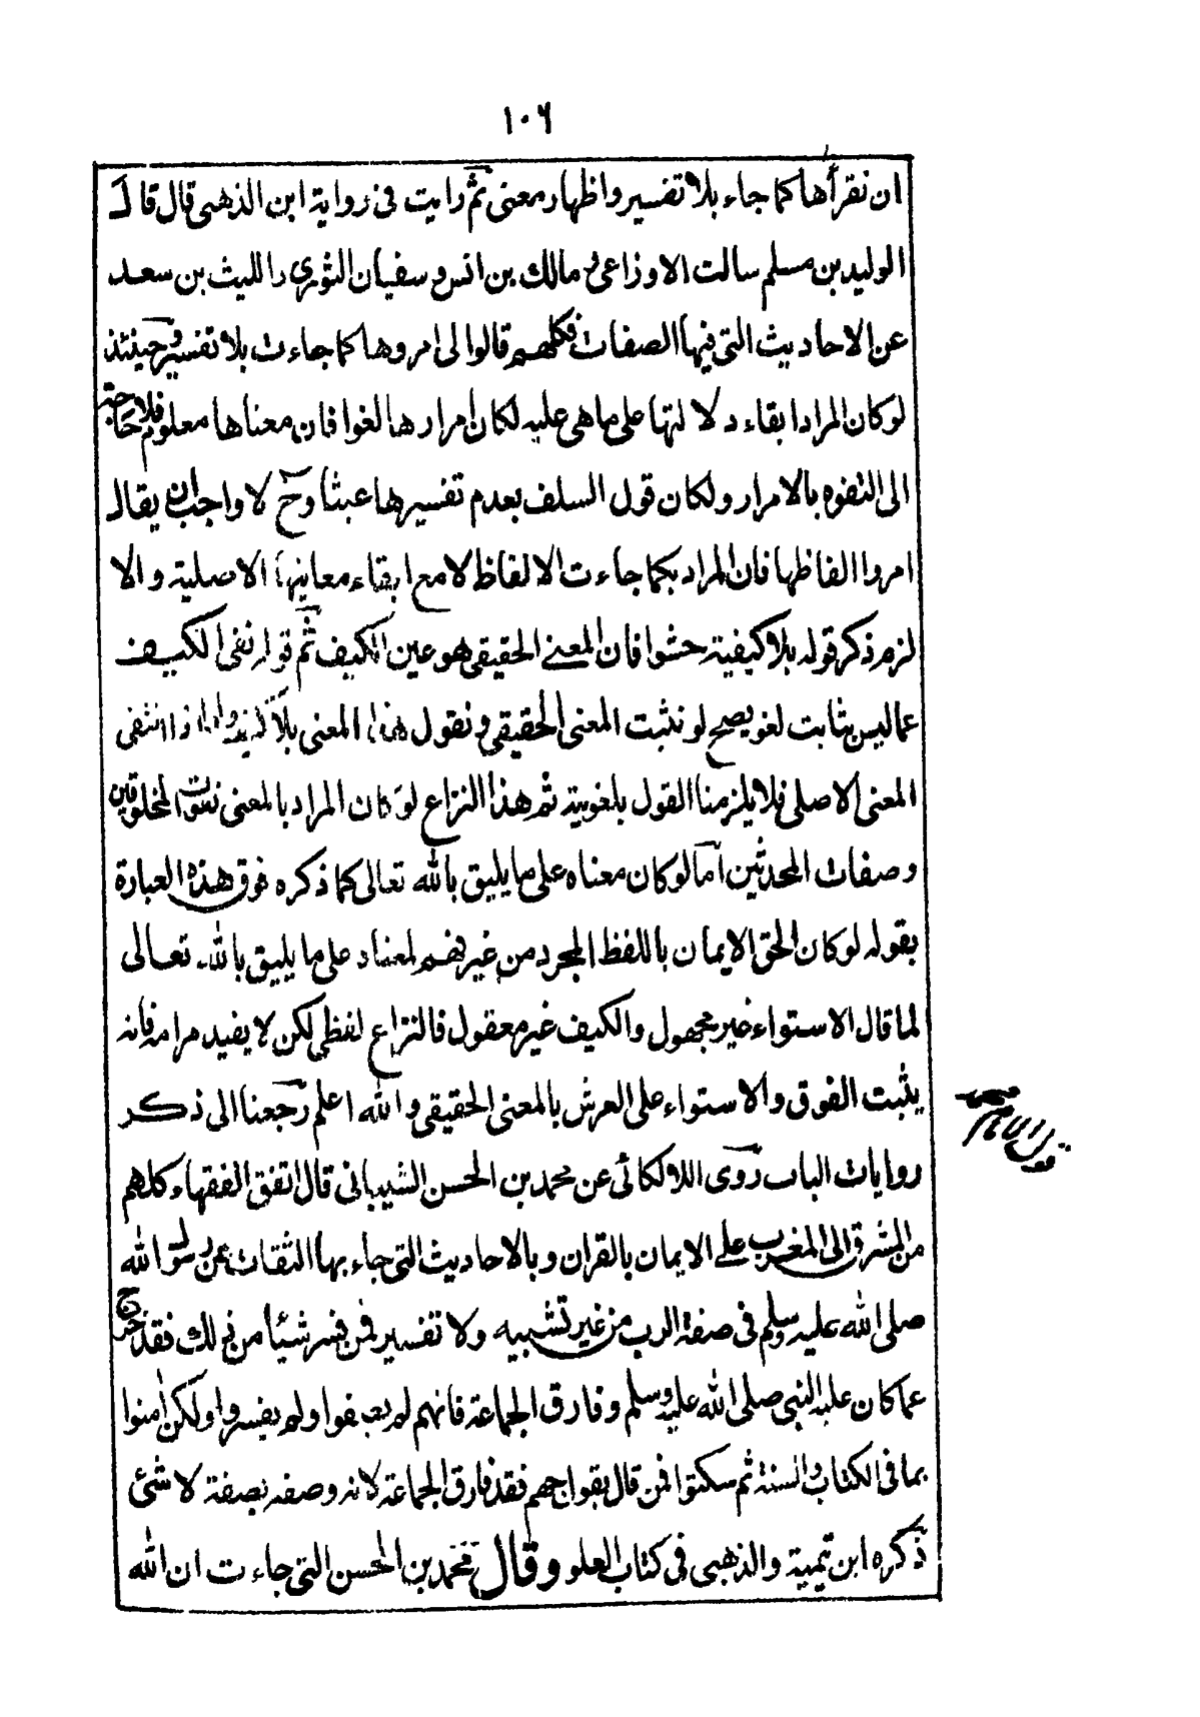 ١٠٦
ان نقرأها كما جاء بلا تفسير واظهار معنى ثم رايت فى رواية ابن الذهبى قال قال
الوليد بن مسلم سالت الاوزاعى و مالك بن انس و سفيان الثورى والليث بن سعد
عن الاحاديث التى فيها الصفات فكلهم قالوا لى امروها كما جاءت بلا تفسير وحينئذ
لو كان المراد ابقاء دلالتها على ما هى عليه لكان امرارها لغوا فان معناها معلوم فلا حاجة
الى التفوه بالامرار ولكان قول السلف بعدم تفسيرها عبثا وح لا واجب ان يقال
امروا الفاظها فان المراد بكما جاءت الالفاظ لا مع ابقاء معانيها الاصلية والا
لزم ذكر قوله بلا كيفية حشوا فان المعنى الحقيقى هو عين الكيف ثم قوله نفى الكيف
عما ليس بثابت لغو يصح لو نثبت المعنى الحقيقى ونقول هذا المعنى بلا كيف واما اذا انتفى
المعنى الاصلى فلا يلزمنا القول بلغويته ثم هذا النزاع لو كان المراد بالمعنى نعوت المخلوقين
وصفات المحدثين اما لو كان معناه على ما يليق بالله تعالى كما ذكره فوق هذه العبارة
بقوله لو كان الحق الايمان باللفظ المجرد من غير فهم لمعناه على ما يليق بالله تعالى
لما قال الاستواء غير مجهول والكيف غير معقول فالنزاع لفظى لكن لا يفيد مرامه فانه
يثبت الفوق والاستواء على العرش بالمعنى الحقيقى والله اعلم رجعنا الى ذكر
روايات الباب روى اللالكائى عن محمد بن الحسن الشيبانى قال اتفق الفقهاء كلهم
من المشرق الى المغرب على الايمان بالقران وبالاحاديث التى جاء بها الثقات عن رسول الله
صلى الله عليه وسلم فى صفة الرب من غير تشبيه ولا تفسير فمن فسر شيئا من ذلك فقد خرج
عما كان عليه النبى صلى الله عليه وسلم وفارق الجماعة فانهم لم يصفوا ولم يفسروا ولكن امنوا
بما فى الكتاب والسنة ثم سكتوا فمن قال بقول جهم فقد فارق الجماعة لانه وصفه بصفة لا شئ
ذكره ابن تيمية والذهبى فى كتاب العلو وقال محمد بن الحسن التى جاءت ان الله
قول الامام محمد